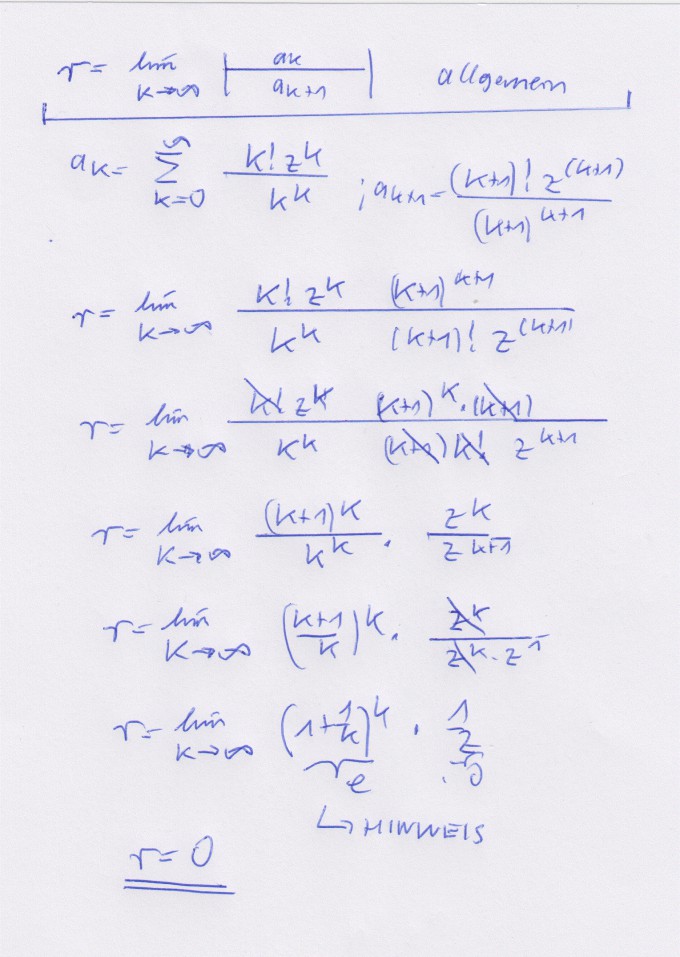 r = lim k→∞ | ak / ak+1 | allgemein
ak = ∑ k=0 ∞ k! z^k / k^k ; ak+1 = (k+1)! z^(k+1) / (k+1)^k+1
r = lim k→∞ k! z^k (k+1)^k+1 / k^k (k+1)! z^(k+1)
r = lim k→∞ k! z^k (k+1)^k · (k+1) / k^k (k+1) k! z^k+1
r = lim k→∞ (k+1)^k / k^k · z^k / z^k+1
r = lim k→∞ (k+1 / k)^k · z^k / z^k · z^1
r = lim k→∞ (1 + 1/k)^k · 1/z
e →0
↳ HINWEIS
r = 0